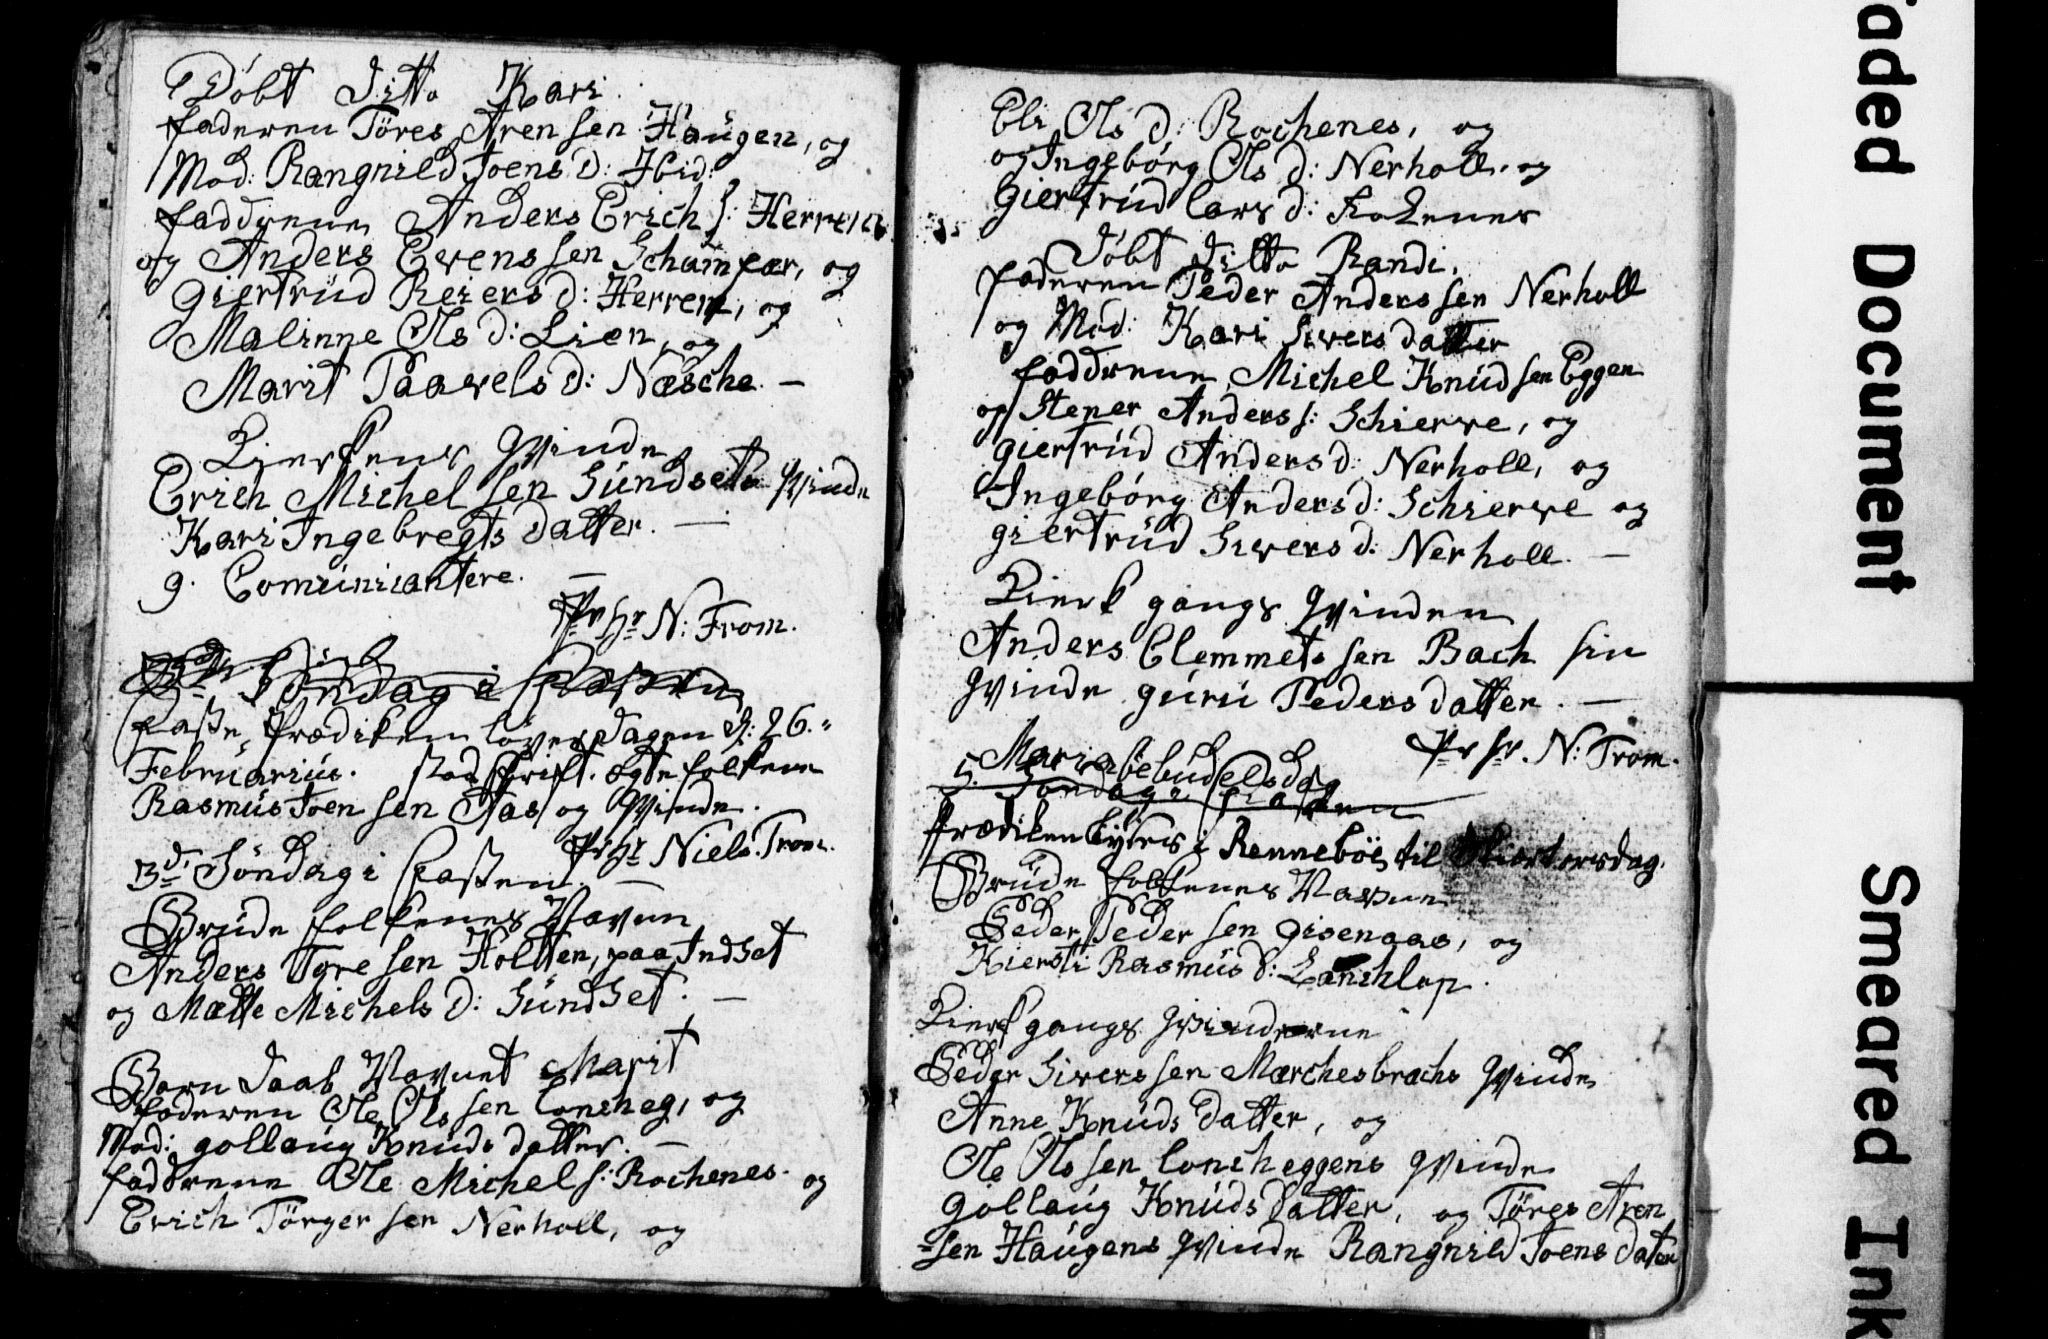 Döbt Ditto Kari
faderen Töres Aren sen Haugen, og
Mod: Rangnild Joens D: Ibid:
faddrene Anders Erich s: Herrem
og Anders Evens sen Schamfær, og
Giertrud Reiers d: Herrem, og
Malinne Ols d: Lien, og
Marit Paavels d: Næscha. —
Kierkens Qvinde
Erich Michel sen Sundsets Qvinde
Kari Ingebregts datter. —
9. Comunicantere. —
Pr Hr N: From.
Söndag i Fasten
Faste Prædiken löverdagen d: 26.
Februarius. stod skrift. ægte folkene
Rasmus Joen sen Aas og Qvinde.
Pr Hr Niels Trom.
3d Söndag i Fasten. —
Brude folkenes Navne
Anders Tore sen Holtten, paa Indset
og Mætte Michels D: Sundset. —
Barn daab Navnet Marit
faderen Ole Ols sen Loncheg, og
Mod: Gollaug Knuds datter. —
faddrene Ole Michel s: Rochenes. og
Erich Törger sen Nerholl, og
Eli Ols d: Rochenes, og
og Ingebórg Ols d: Nerholl. og
Giertrud Lars d: Rokenes
Döbt ditto Randi.
faderen Peder Anders sen Nerholl
og Mod: Kari Sivers datter
faddrene Michel Knud sen Eggen
og Stener Anders s: Schierve, og
Giertrud Anders d: Nerholl, og
Ingebórg Anders d: Schierve og
Giertrud Sivers d: Nerholl. —
Kierk gangs Qvinden
Anders Clemmets sen Bach sin
Qvinde Guru Peders datter. —
Pr Hr. N: Trom.
Maria bebudelsdag
5. Söndag i Fasten
Prædiken lyses i Renneböe til Skiertorsdag.
Brude folkenes Navne
Peder Peder sen Gisenaas, og
Kiersti Rasmus d: Lanchlop.
Kierkgangs Qvinderne
Peder Sivers sen Mærchesbrachs Qvinde
Anne Knuds datter, og
Ole Ols sen Loncheggens Qvinde
Gollaug Knuds datter, og Töres Aren
-sen Haugens Qvinde Rangnild Joens dater
Faded Document
Smeared Ink